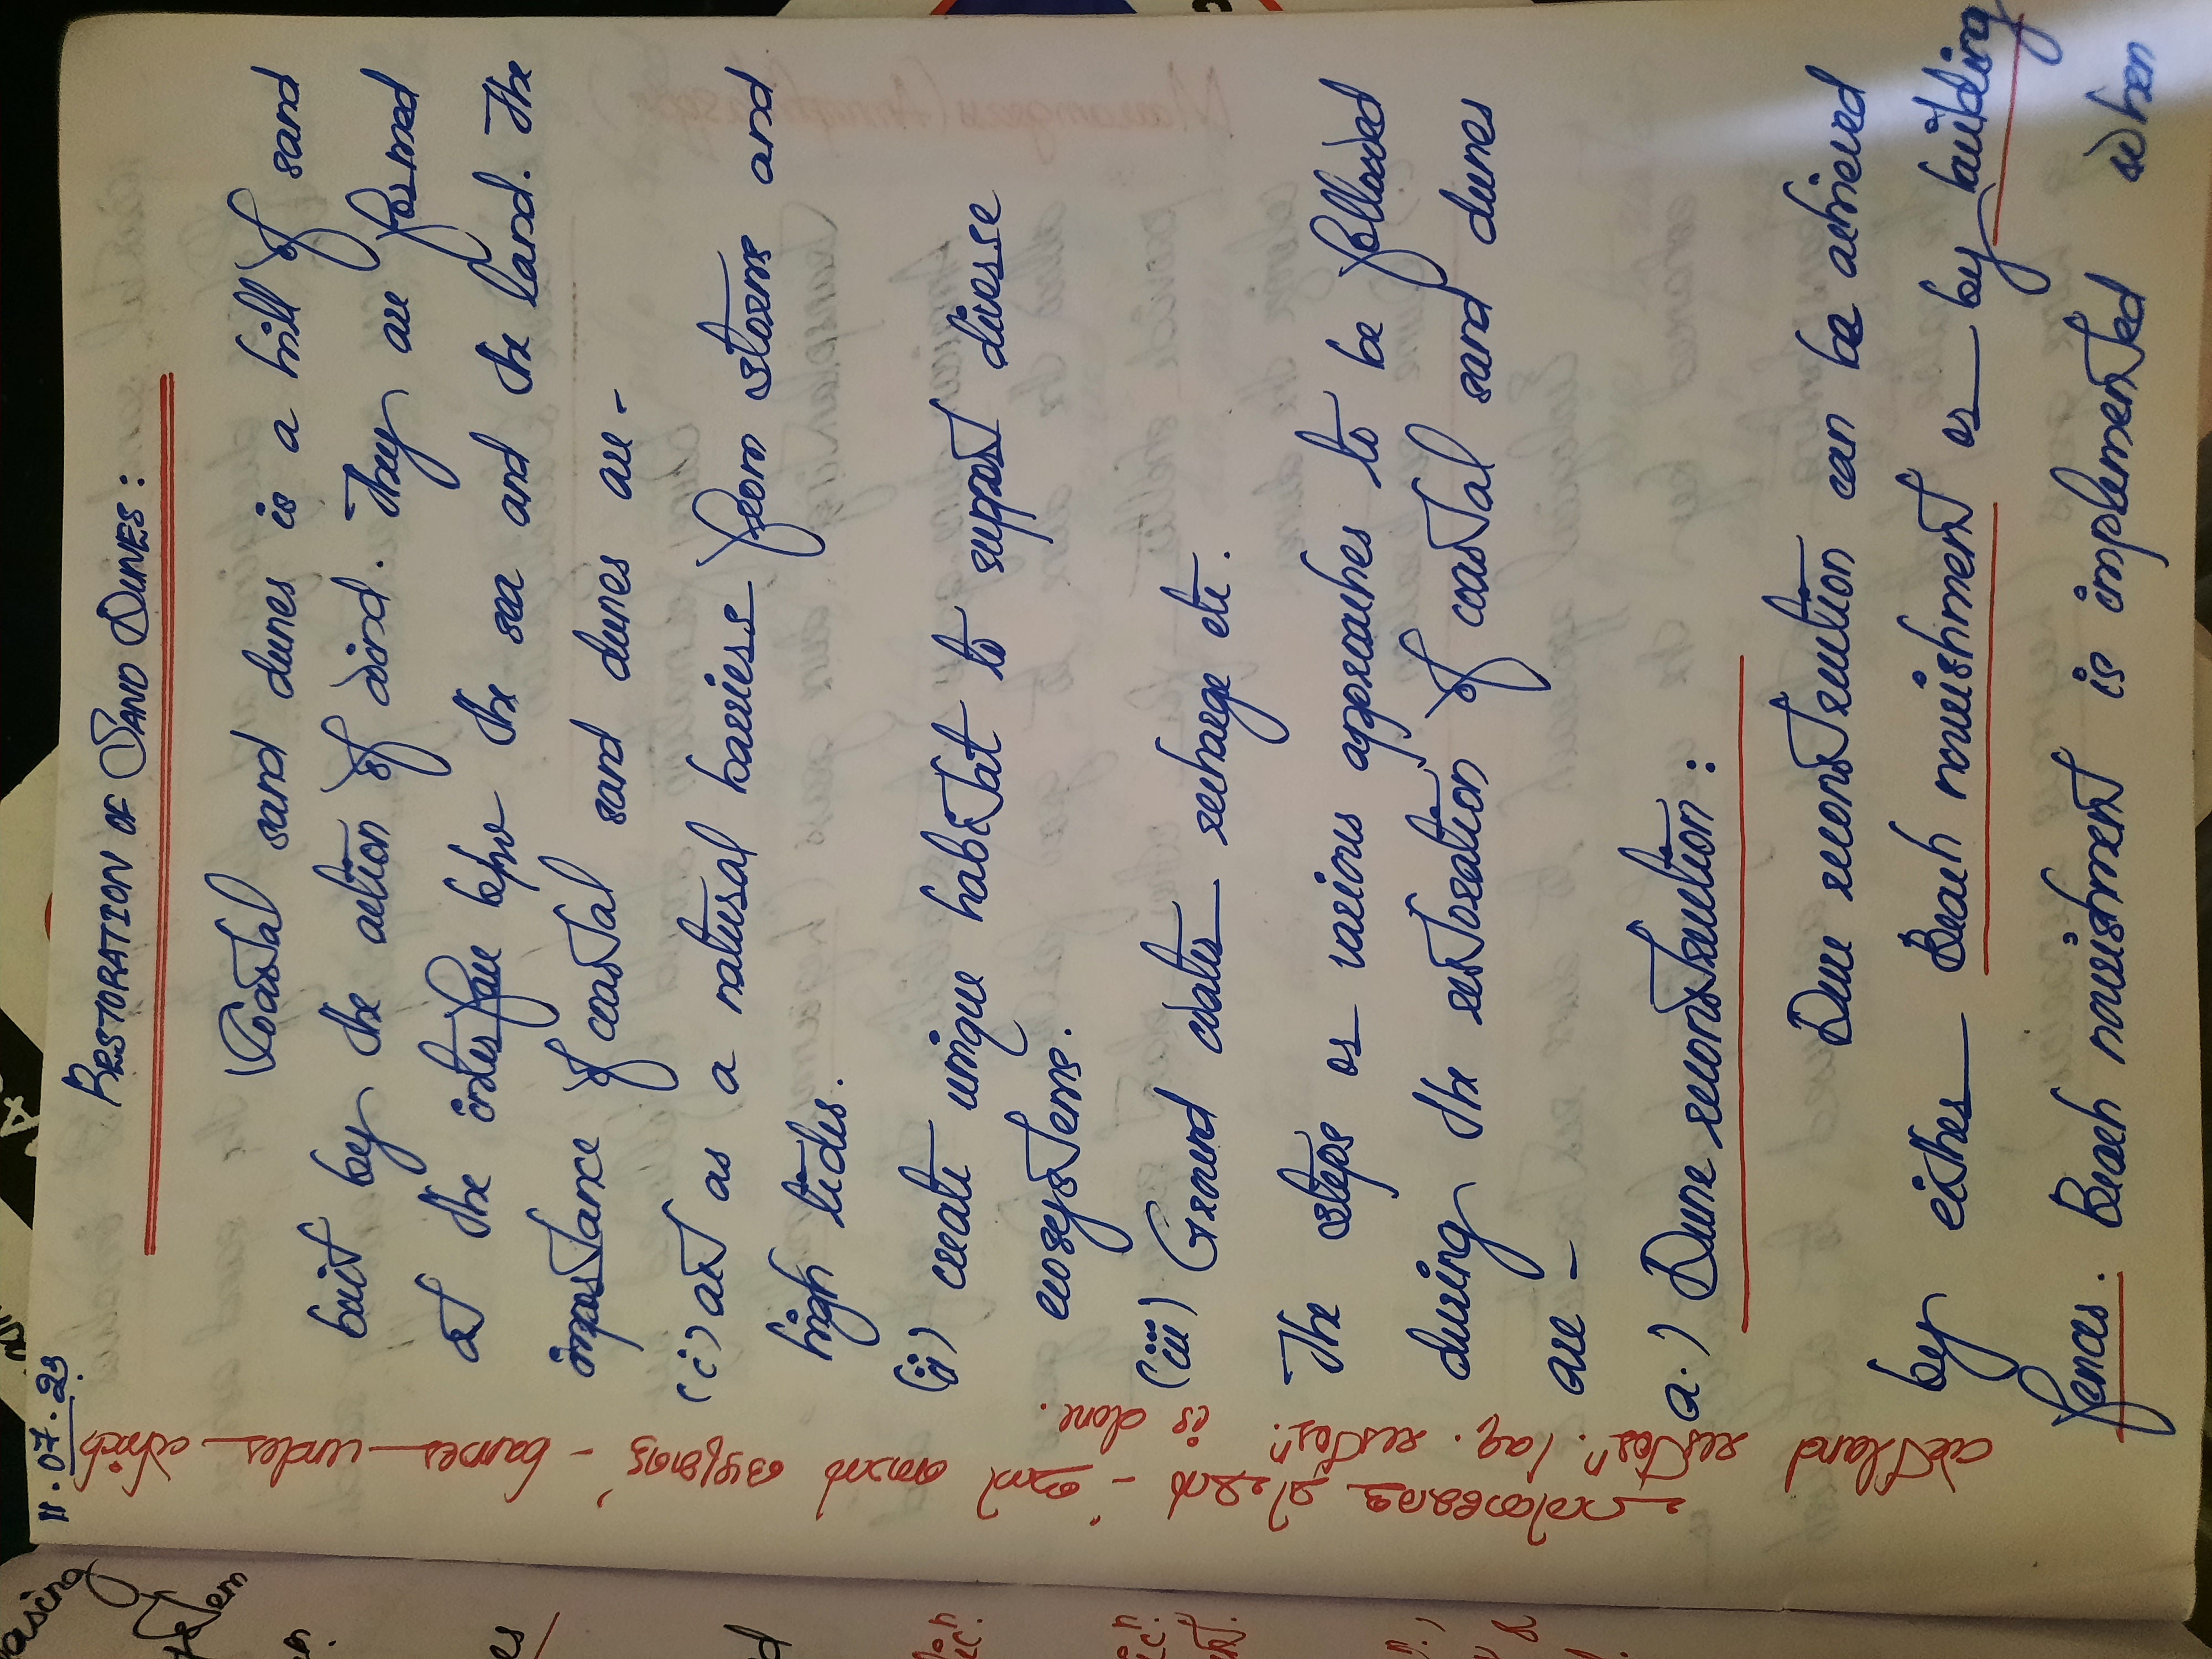 11.07.23
RESTORATION OF SAND DUNES :
Coastal sand dunes is a hill of sand
buit by the action of wind. They are formed
at the interface b/w the sea and the land. The
importance of coastal sand dunes are -
(i) act as a natural barrier from storms and
high tides.
(ii) create unique habitat to support diverse
ecosystems.
(iii) Ground water recharge etc.
The steps or various approaches to be followed
during the restoration of coastal sand dunes
are -
a.) Dune reconstruction :
Dune reconstruction can be achieved
by either Beach nourishment or by building
fences. Beach nourishment is implemented when
- names under which
wetland restorⁿ. / aq. restorⁿ. is done.